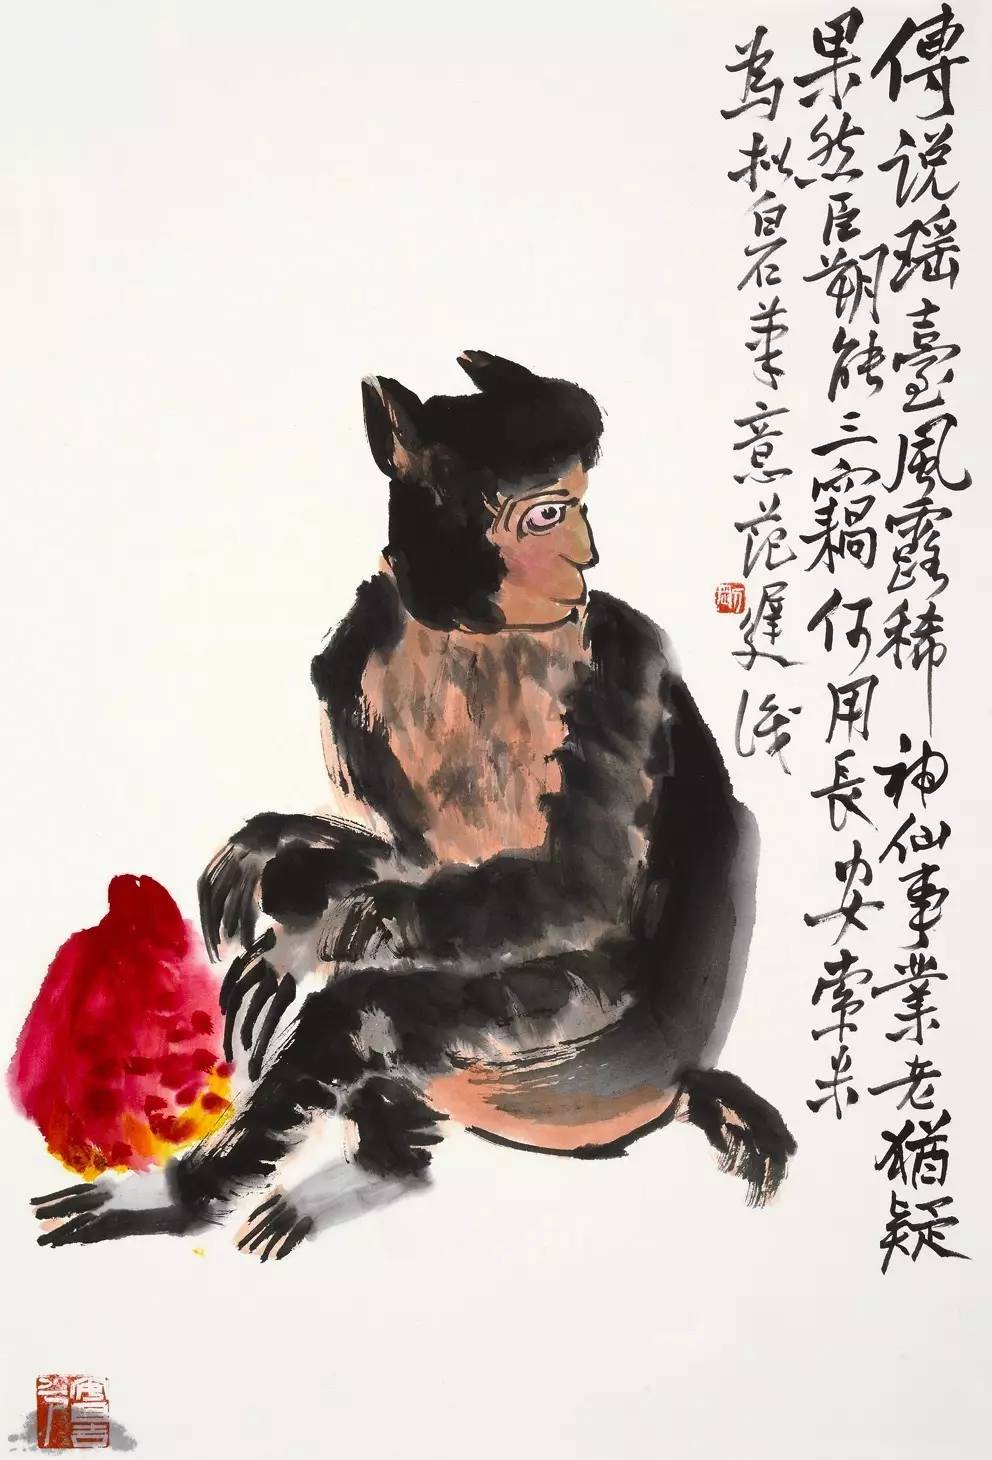 傳说瑶臺風露稀神仙事業老猶疑
果然臣朔能三竊何用長安索米
為拟白石筆意范遲識